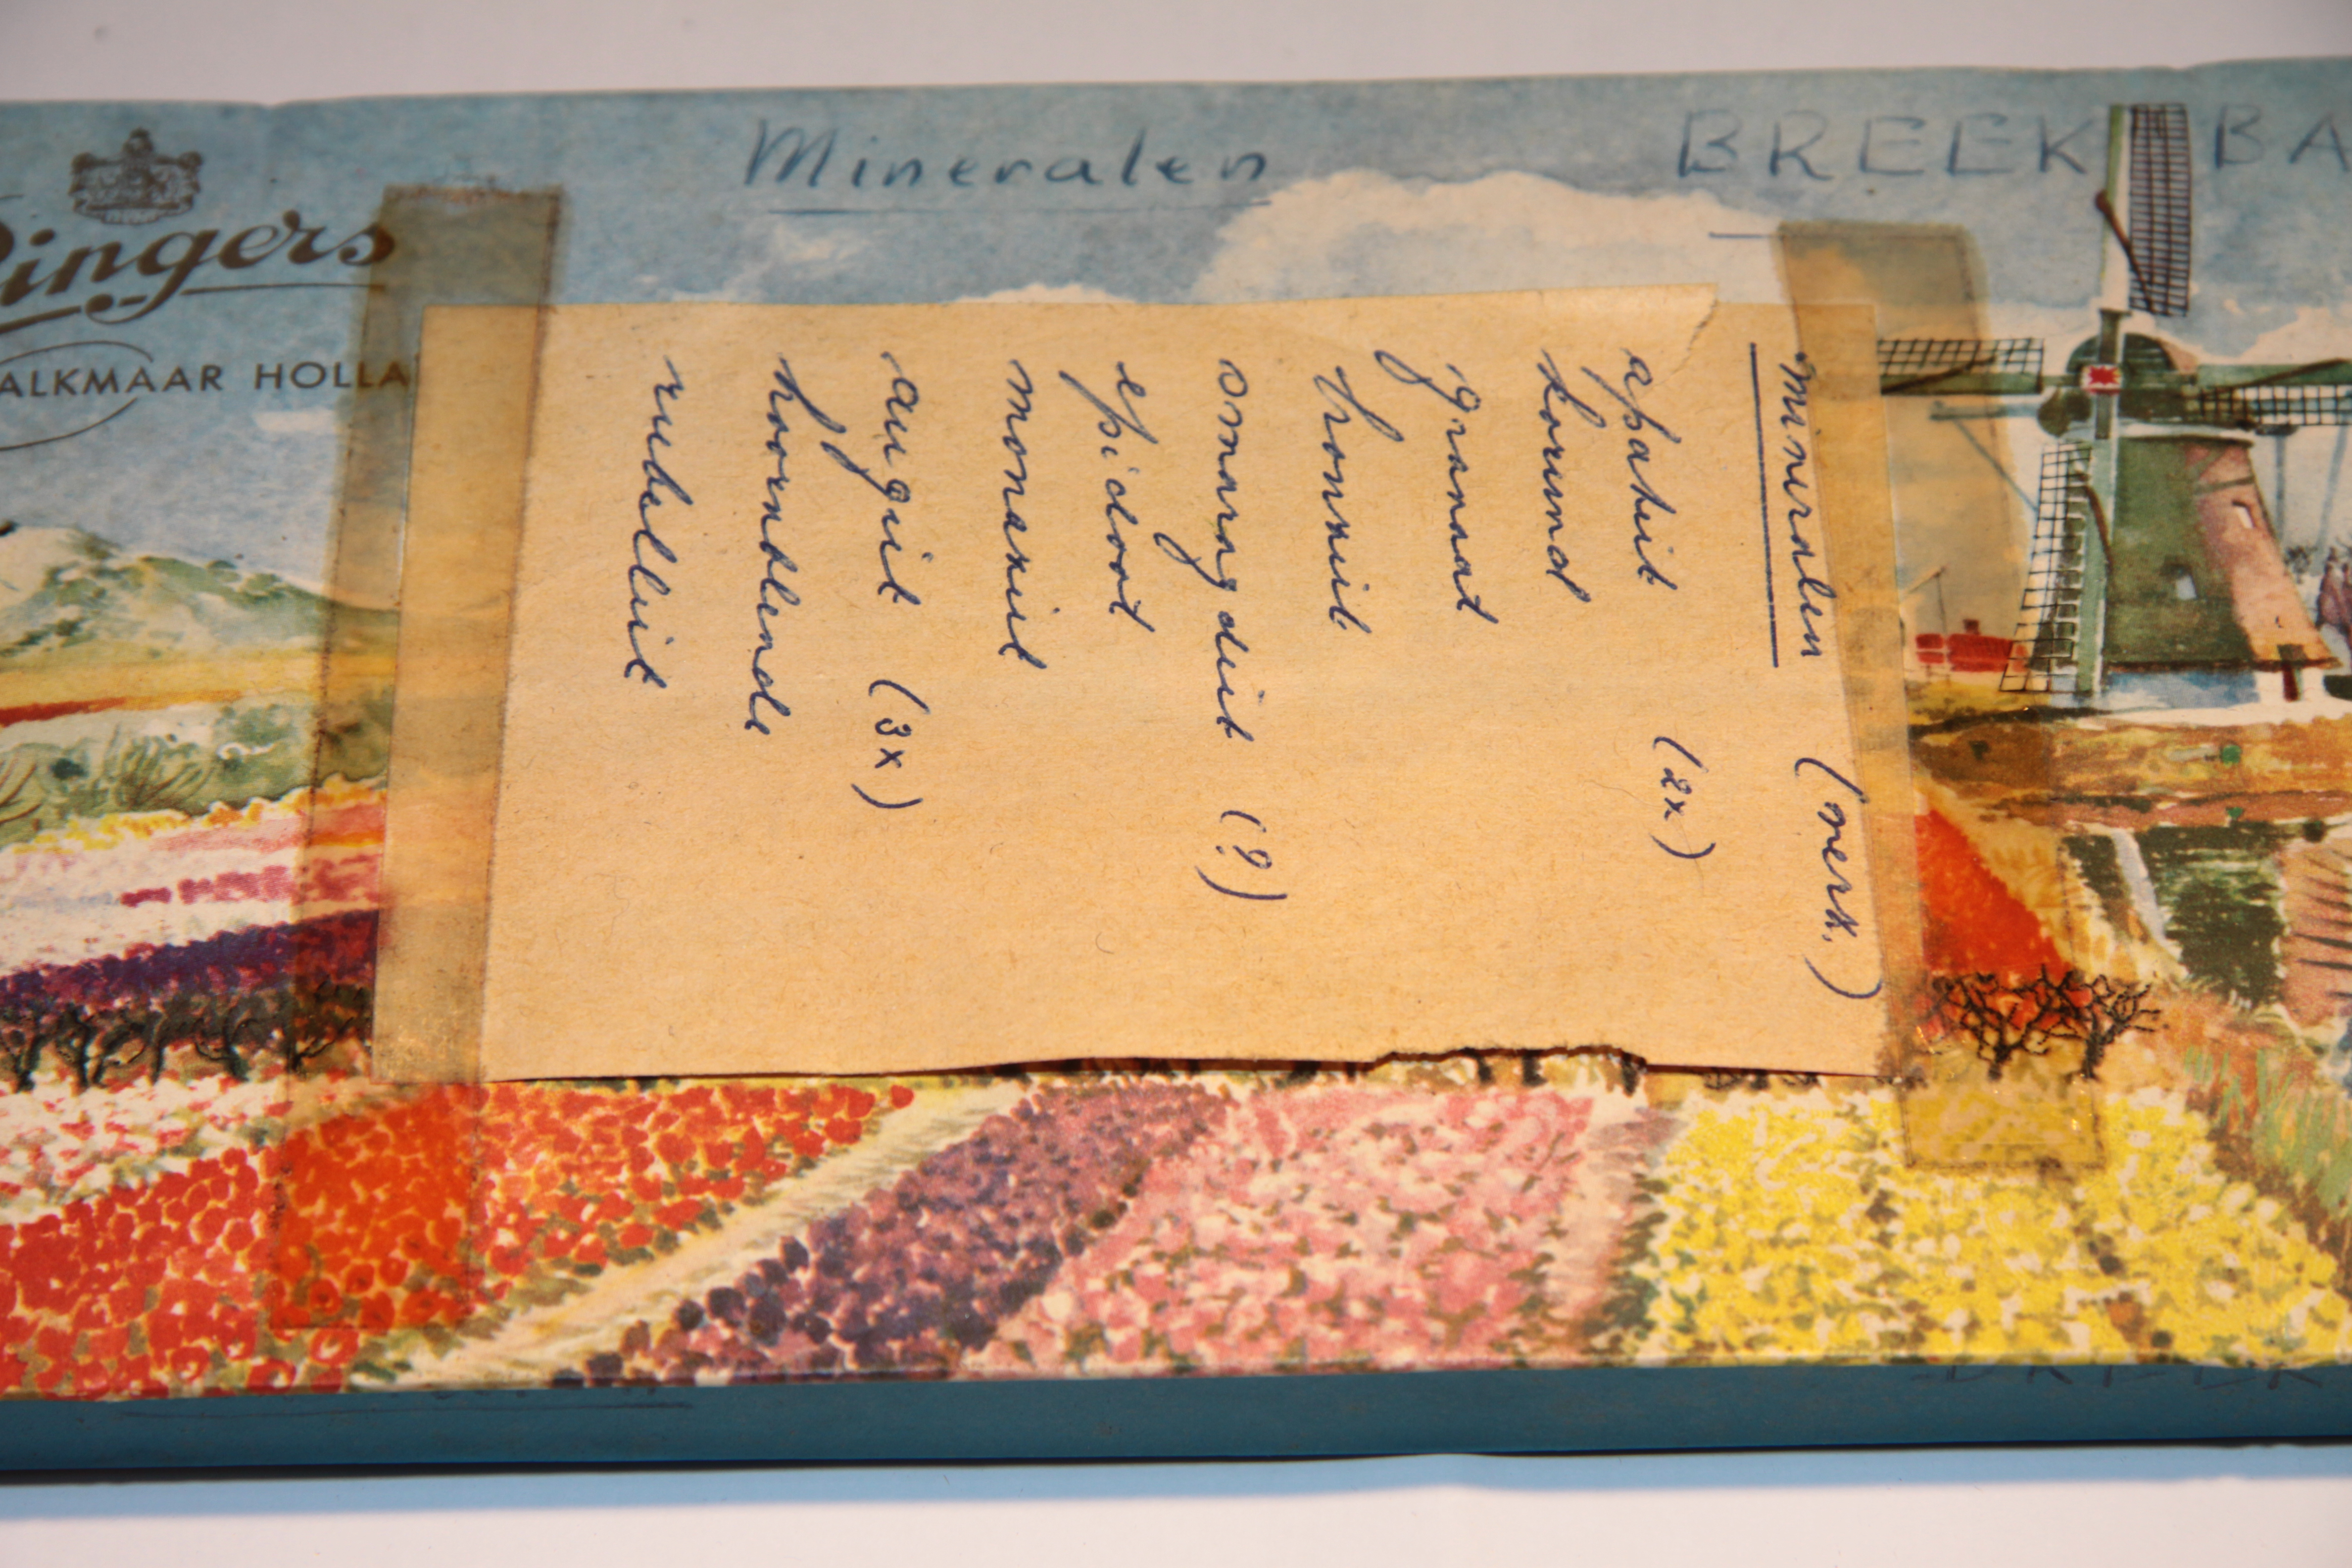 Ringers
ALKMAAR HOLLA
Mineralen
BREEK BA
mineralen (verz.)
apatiet (2x)
korund
granaat
bronziet
smaragdiet (?)
epidoot
monaziet
augiet (3x)
hoornblende
rubelliet
BREEK